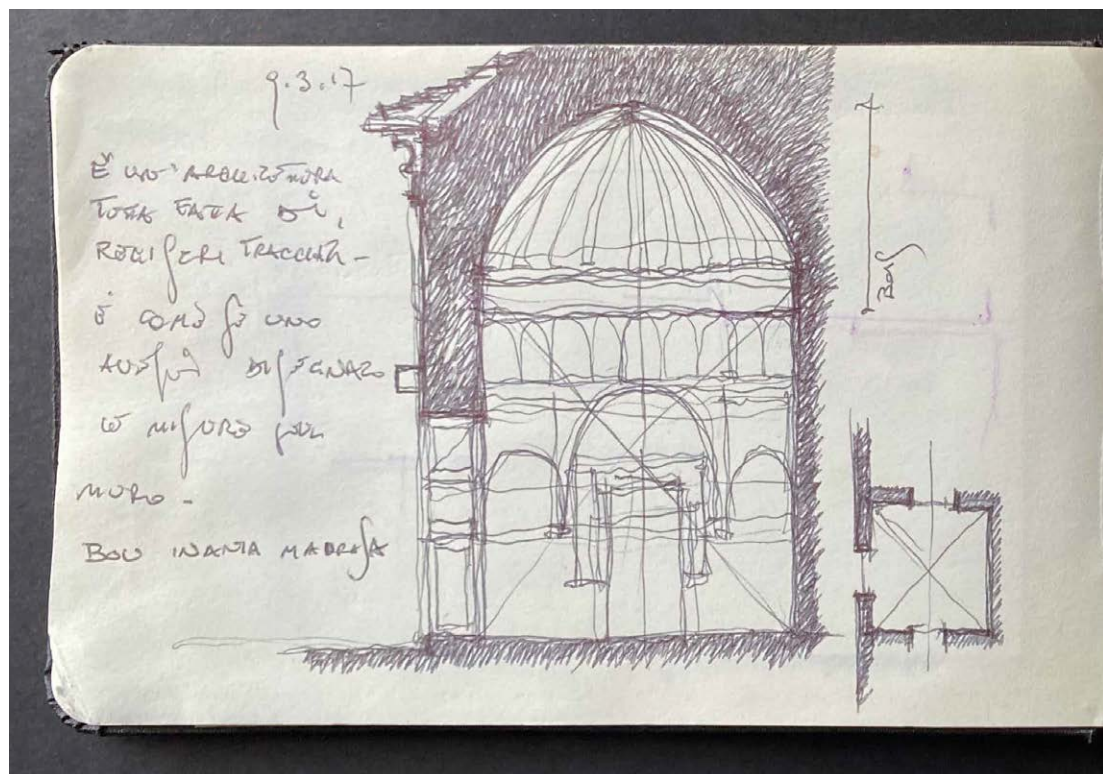 9.3.17
È UN'ARCHITETTURA
TUTTA FATTA DI
REGISTRI TRACCIATI-
È COME SE UNO
AVESSE DISEGNATO
LE MISURE SUL
MURO -
BOU INANIA MADRASA